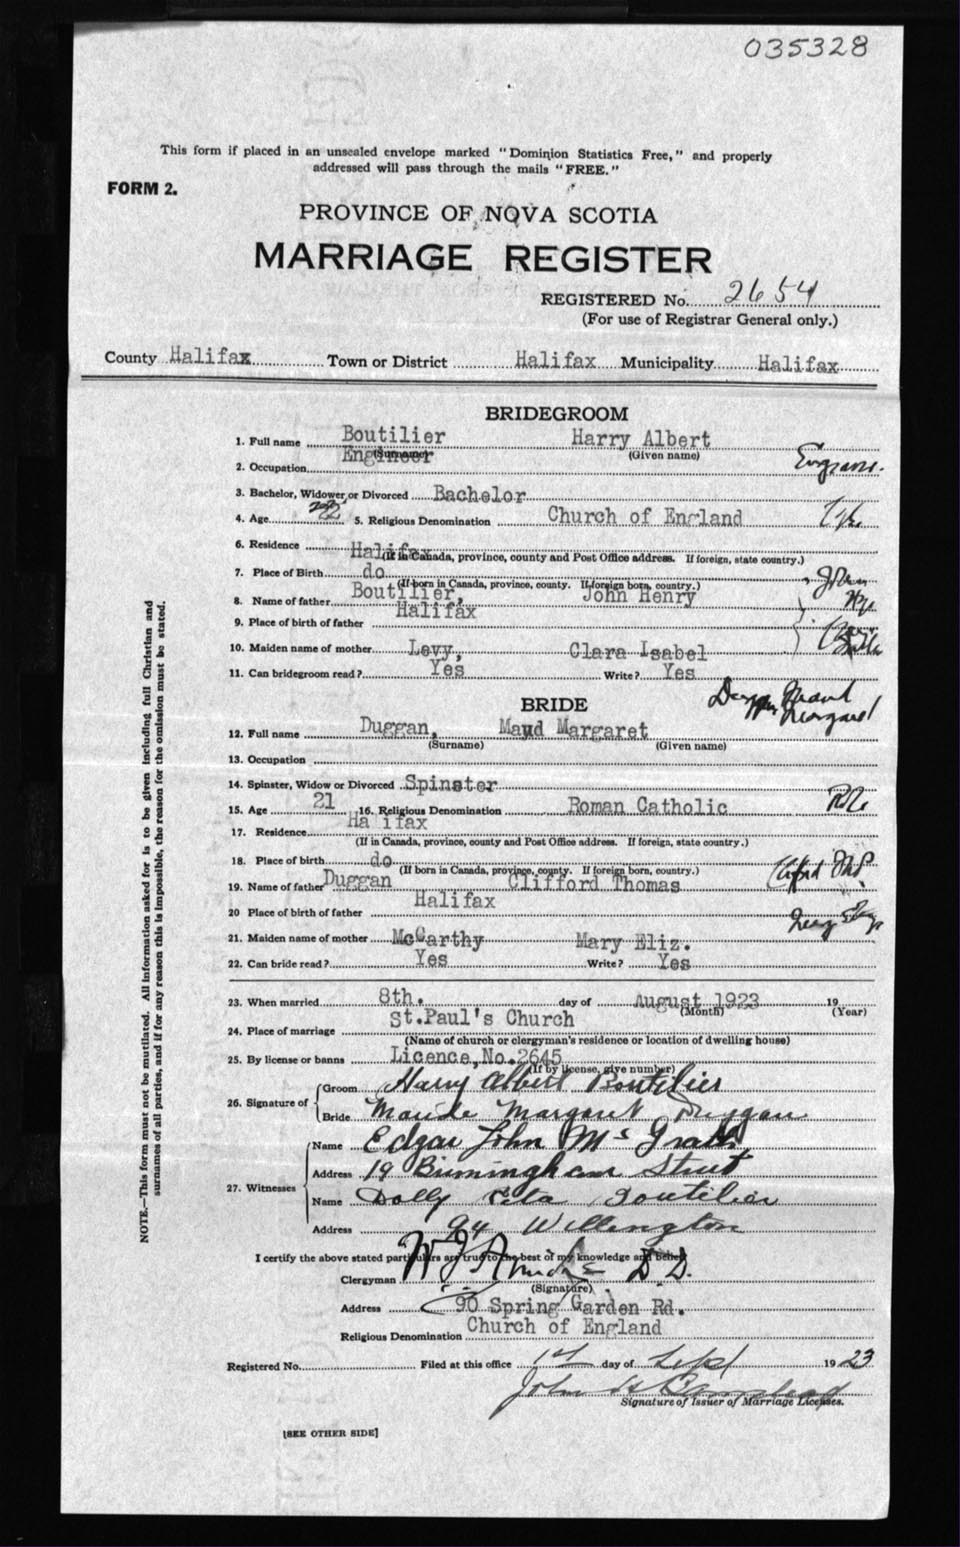 035328
This form if placed in an unsealed envelope marked "Dominion Statistics Free," and properly
addressed will pass through the mails "FREE."
FORM 2.
PROVINCE OF NOVA SCOTIA
MARRIAGE REGISTER
REGISTERED No. 2654
(For use of Registrar General only.)
County Halifax Town or District Halifax Municipality Halifax
BRIDEGROOM
1. Full name Boutilier Harry Albert
(Surname) (Given name)
2. Occupation Engineer
3. Bachelor, Widower or Divorced Bachelor
4. Age 22 5. Religious Denomination Church of England
6. Residence Halifax
(If in Canada, province, county and Post Office address. If foreign, state country.)
7. Place of Birth do
(If born in Canada, province, county. If foreign born, country.)
8. Name of father Boutilier, John Henry
9. Place of birth of father Halifax
10. Maiden name of mother Levy, Clara Isabel
11. Can bridegroom read? Yes Write? Yes
BRIDE
12. Full name Duggan, Maud Margaret
(Surname) (Given name)
13. Occupation
14. Spinster, Widow or Divorced Spinster
15. Age 21 16. Religious Denomination Roman Catholic
17. Residence Ha ifax
(If in Canada, province, county and Post Office address. If foreign, state country.)
18. Place of birth do
(If born in Canada, province, county. If foreign born, country.)
19. Name of father Duggan Clifford Thomas
20 Place of birth of father Halifax
21. Maiden name of mother McCarthy Mary Eliz.
22. Can bride read? Yes Write? Yes
23. When married 8th. day of August 1923 19
(Month) (Year)
24. Place of marriage St.Paul's Church
(Name of church or clergyman's residence or location of dwelling house)
25. By license or banns Licence,No.2645
(If by license, give number)
26. Signature of Groom Harry Albert Boutilier
Bride Maude Margaret Duggan
27. Witnesses Name Edgar John McGrath
Address 19 Birmingham Street
Name Dolly Boutilier
Address 94 Wellington
I certify the above stated particulars are true to the best of my knowledge and belief
Clergyman D.D.
(Signature)
Address 90 Spring Garden Rd.
Religious Denomination Church of England
Registered No. Filed at this office day of Sept 1923
John H
Signature of Issuer of Marriage Licenses.
[SEE OTHER SIDE]
NOTE.—This form must not be mutilated. All information asked for is to be given including full Christian and
surnames of all parties, and if for any reason this is impossible, the reason for the omission must be stated.